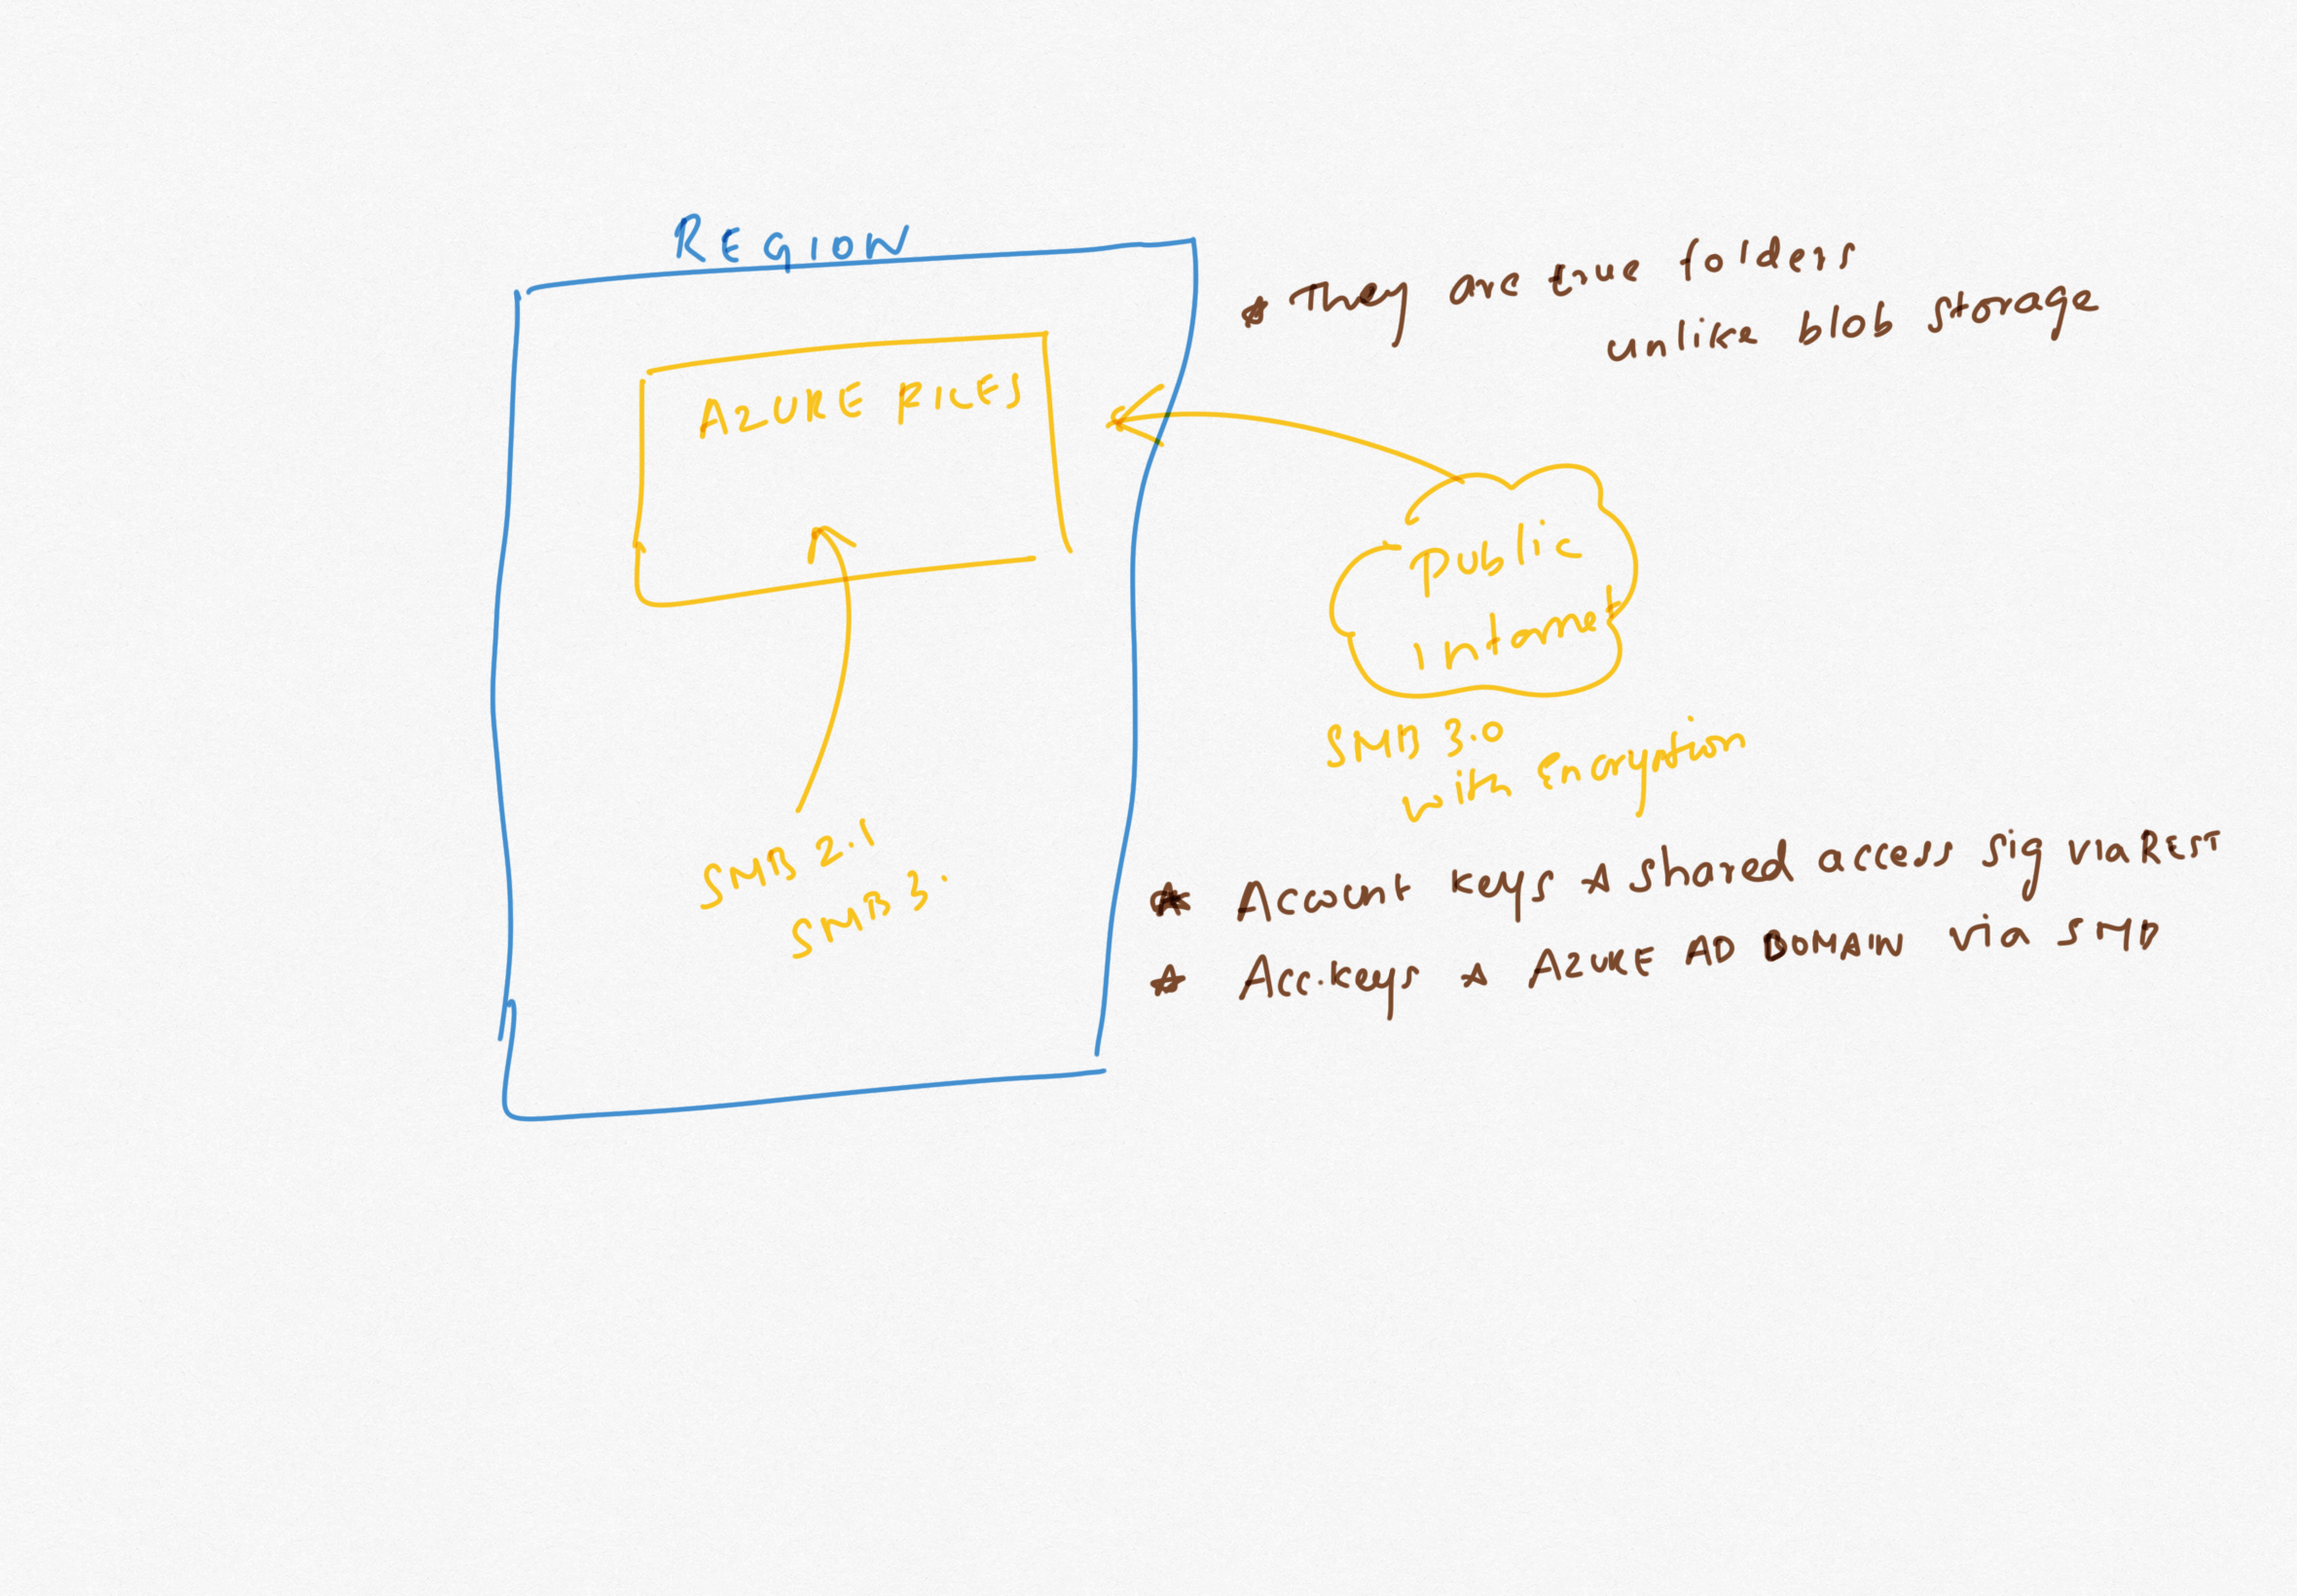 REGION
AZURE FILES
SMB 2.1
SMB 3.
* They are true folders
unlike blob storage
Public
Internet
SMB 3.0
with Encryption
* Account keys * shared access sig via REST
* Acc.keys * AZURE AD DOMAIN via SMB